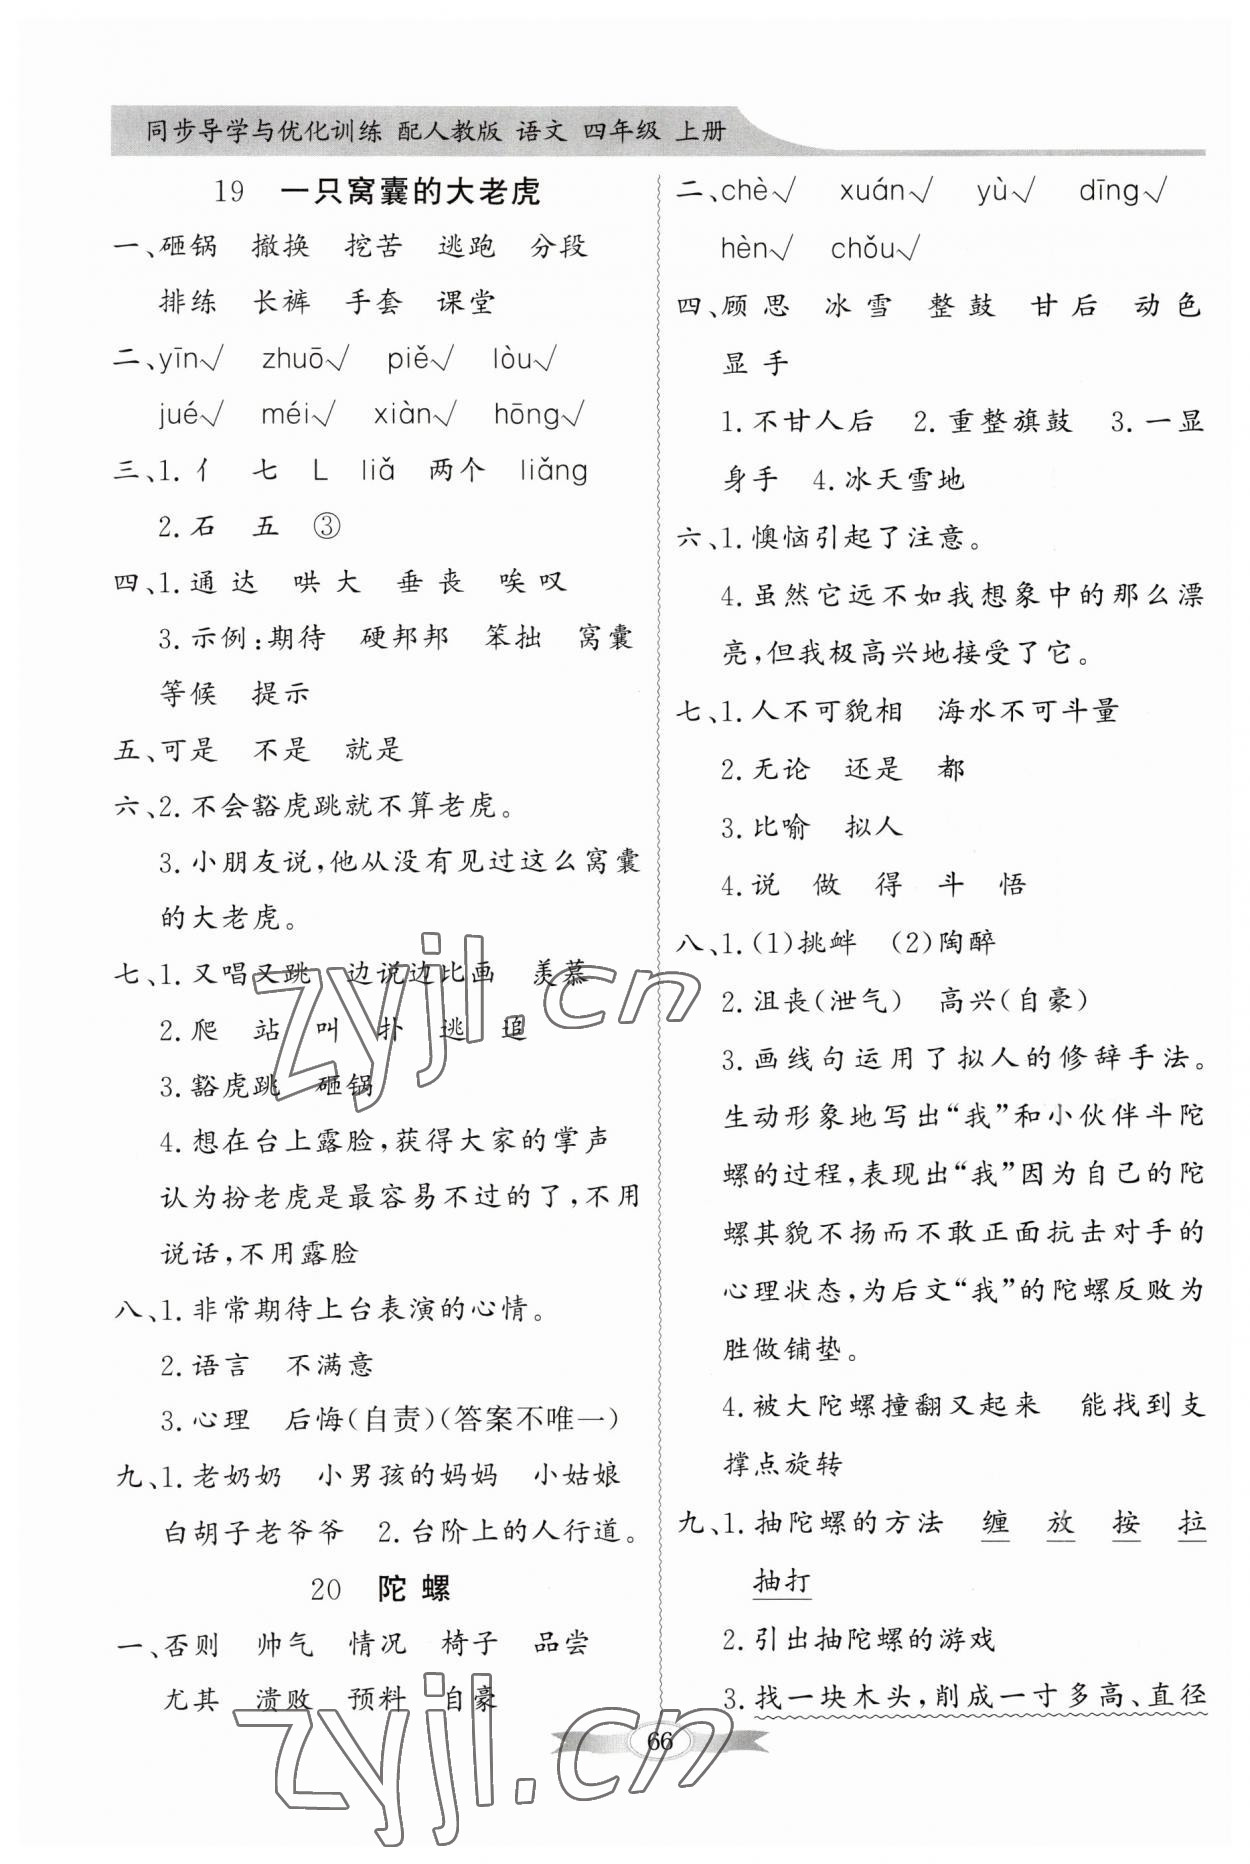 同步导学与优化训练 配人教版 语文 四年级 上册
19 一只窝囊的大老虎
一、砸锅 撤换 挖苦 逃跑 分段
排练 长裤 手套 课堂
二、yīn√ zhuō√ piě√ lòu√
jué√ méi√ xiàn√ hōng√
三、1.亻 七 L liǎ 两个 liǎng
2.石 五 ③
四、1.通达 哄大 垂丧 唉叹
3.示例:期待 硬邦邦 笨拙 窝囊
等候 提示
五、可是 不是 就是
六、2.不会豁虎跳就不算老虎。
3.小朋友说,他从没有见过这么窝囊
的大老虎。
七、1.又唱又跳 边说边比画 羡慕
2.爬 站 叫 扑 逃 追
3.豁虎跳 砸锅
4.想在台上露脸,获得大家的掌声
认为扮老虎是最容易不过的了,不用
说话,不用露脸
八、1.非常期待上台表演的心情。
2.语言 不满意
3.心理 后悔(自责)(答案不唯一)
九、1.老奶奶 小男孩的妈妈 小姑娘
白胡子老爷爷 2.台阶上的人行道。
20 陀螺
一、否则 帅气 情况 椅子 品尝
尤其 溃败 预料 自豪
二、chè√ xuán√ yù√ dīng√
hèn√ chǒu√
四、顾思 冰雪 整鼓 甘后 动色
显手
1.不甘人后 2.重整旗鼓 3.一显
身手 4.冰天雪地
六、1.懊恼引起了注意。
4.虽然它远不如我想象中的那么漂
亮,但我极高兴地接受了它。
七、1.人不可貌相 海水不可斗量
2.无论 还是 都
3.比喻 拟人
4.说 做 得 斗 悟
八、1.(1)挑衅 (2)陶醉
2.沮丧(泄气) 高兴(自豪)
3.画线句运用了拟人的修辞手法。
生动形象地写出“我”和小伙伴斗陀
螺的过程,表现出“我”因为自己的陀
螺其貌不扬而不敢正面抗击对手的
心理状态,为后文“我”的陀螺反败为
胜做铺垫。
4.被大陀螺撞翻又起来 能找到支
撑点旋转
九、1.抽陀螺的方法 缠 放 按 拉
抽打
2.引出抽陀螺的游戏
3.找一块木头,削成一寸多高、直径
66
zyjl.cn
zyjl.cn